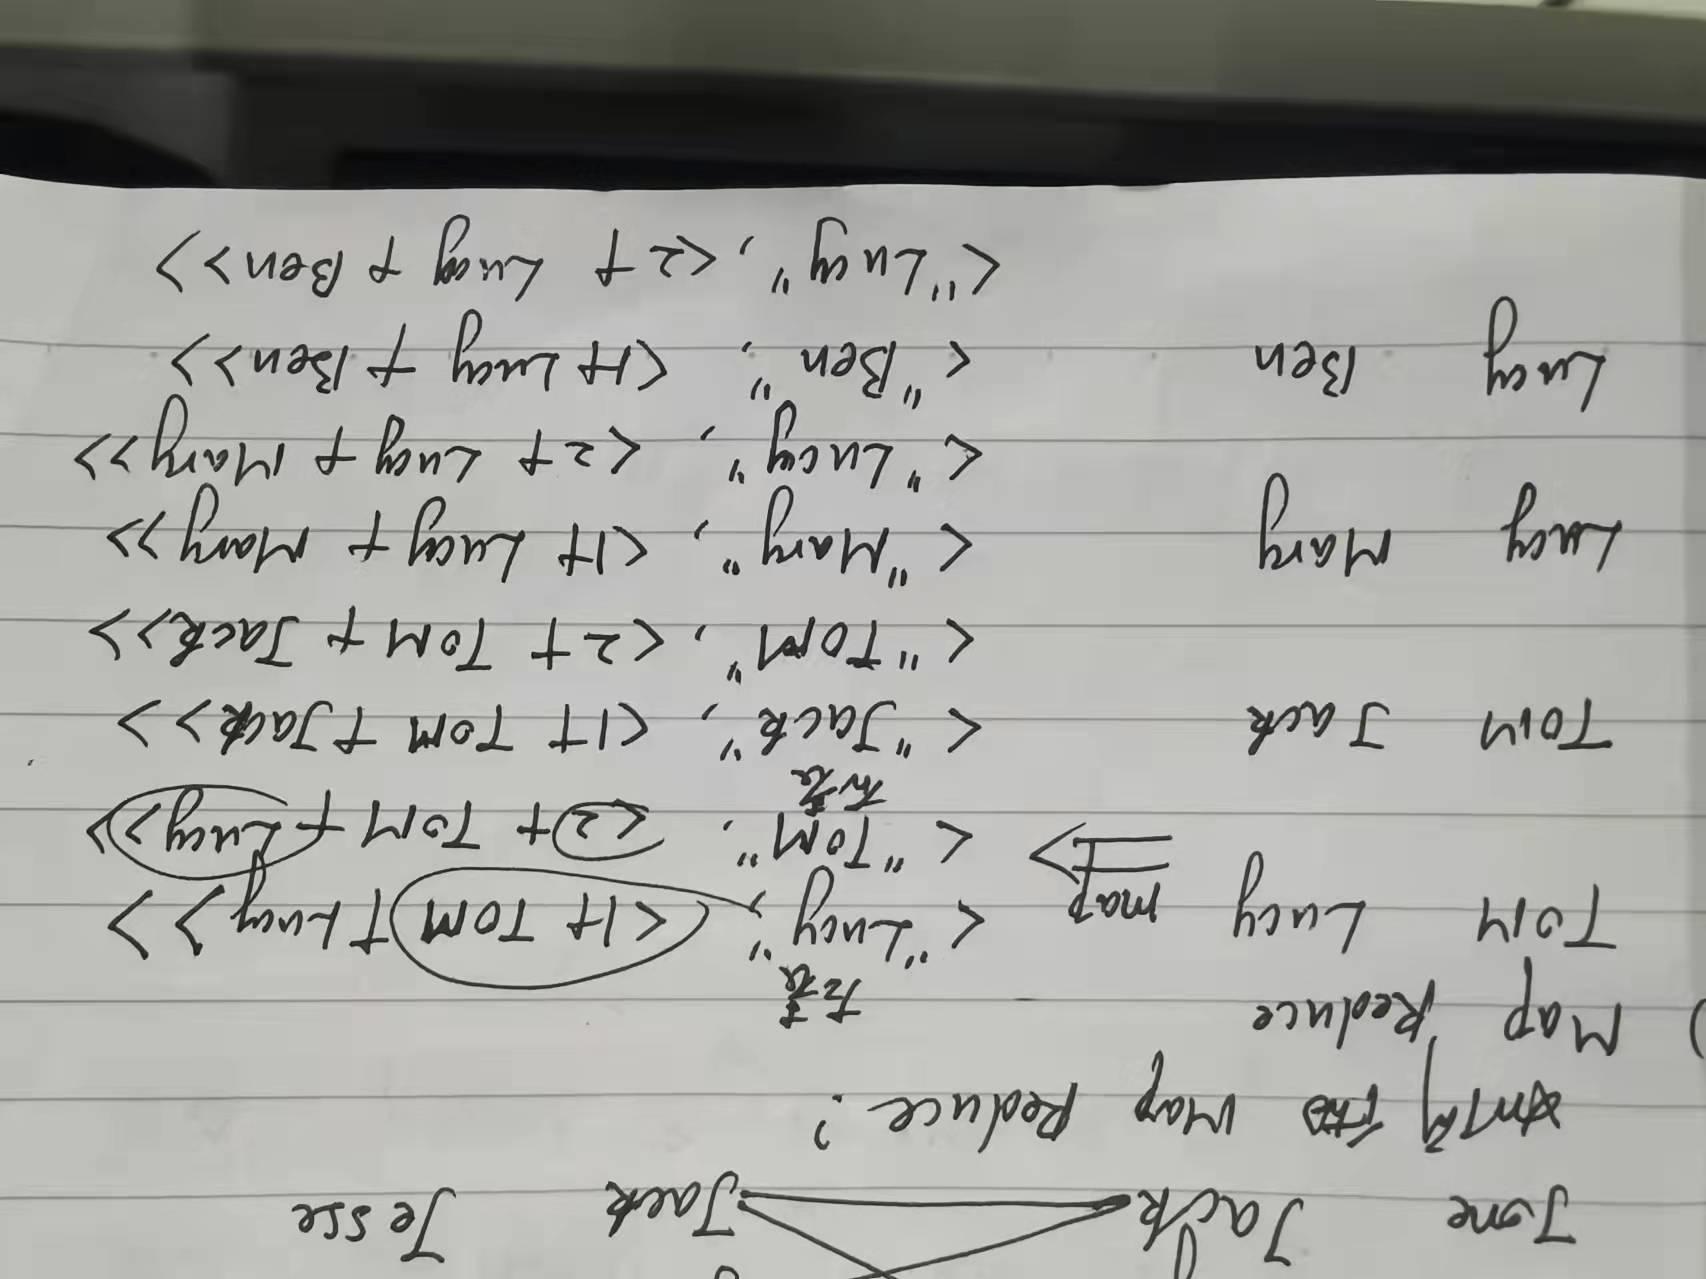 Jone Jack Jack Jesse
如何 Map Reduce?
) Map Reduce
左表
Tom Lucy map <"Lucy", <1+ Tom + Lucy>>
<"Tom", <2+ Tom + Lucy>>
右表
Tom Jack <"Jack", <1+ Tom + Jack>>
<"Tom", <2+ Tom + Jack>>
Lucy Mary <"Mary", <1+ Lucy + Mary>>
<"Lucy", <2+ Lucy + Mary>>
Lucy Ben <"Ben", <1+ Lucy + Ben>>
<"Lucy", <2+ Lucy + Ben>>